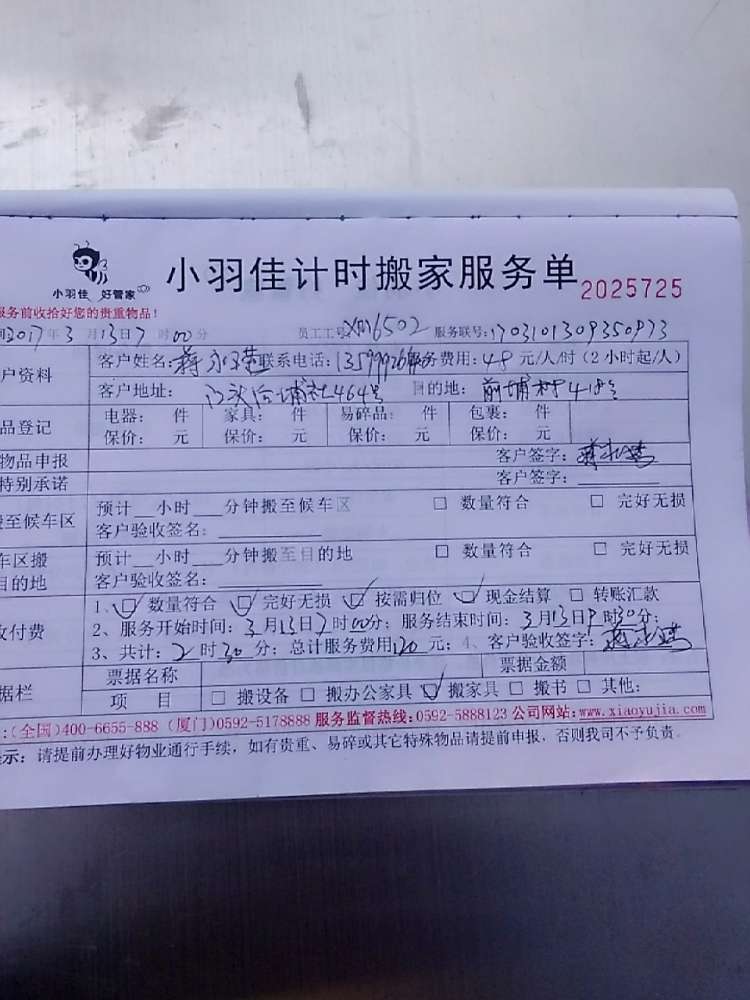 小羽佳 好管家
小羽佳计时搬家服务单 2025725
服务前收拾好您的贵重物品！
2017年3月13日7时00分 员工工号XM6502 服务联号:1703101309350973
户资料 客户姓名: 联系电话: 服务费用:48元/人/时(2小时起/人)
客户地址: 464号 目的地: 前埔村418号
品登记 电器: 件 家具: 件 易碎品: 件 包裹: 件
保价: 元 保价: 元 保价: 元 保价: 元
物品申报 客户签字:
特别承诺 客户签字:
至候车区 预计 小时 分钟搬至候车区 □ 数量符合 □ 完好无损
客户验收签名:
车区搬 预计 小时 分钟搬至目的地 □ 数量符合 □ 完好无损
目的地 客户验收签名:
1、☑ 数量符合 ☑ 完好无损 ☑ 按需归位 ☑ 现金结算 □ 转账汇款
付费 2、服务开始时间:3月13日7时00分; 服务结束时间:3月13日9时30分;
3、共计:2时30分; 总计服务费用120元; 4、客户验收签字:
据栏 票据名称 票据金额
项 目 □ 搬设备 □ 搬办公家具 ☑ 搬家具 □ 搬书 □ 其他:
:(全国)400-6655-888 (厦门)0592-5178888 服务监督热线:0592-5888123 公司网站:www.xiaoyujia.com
示: 请提前办理好物业通行手续，如有贵重、易碎或其它特殊物品请提前申报，否则我司不予负责。